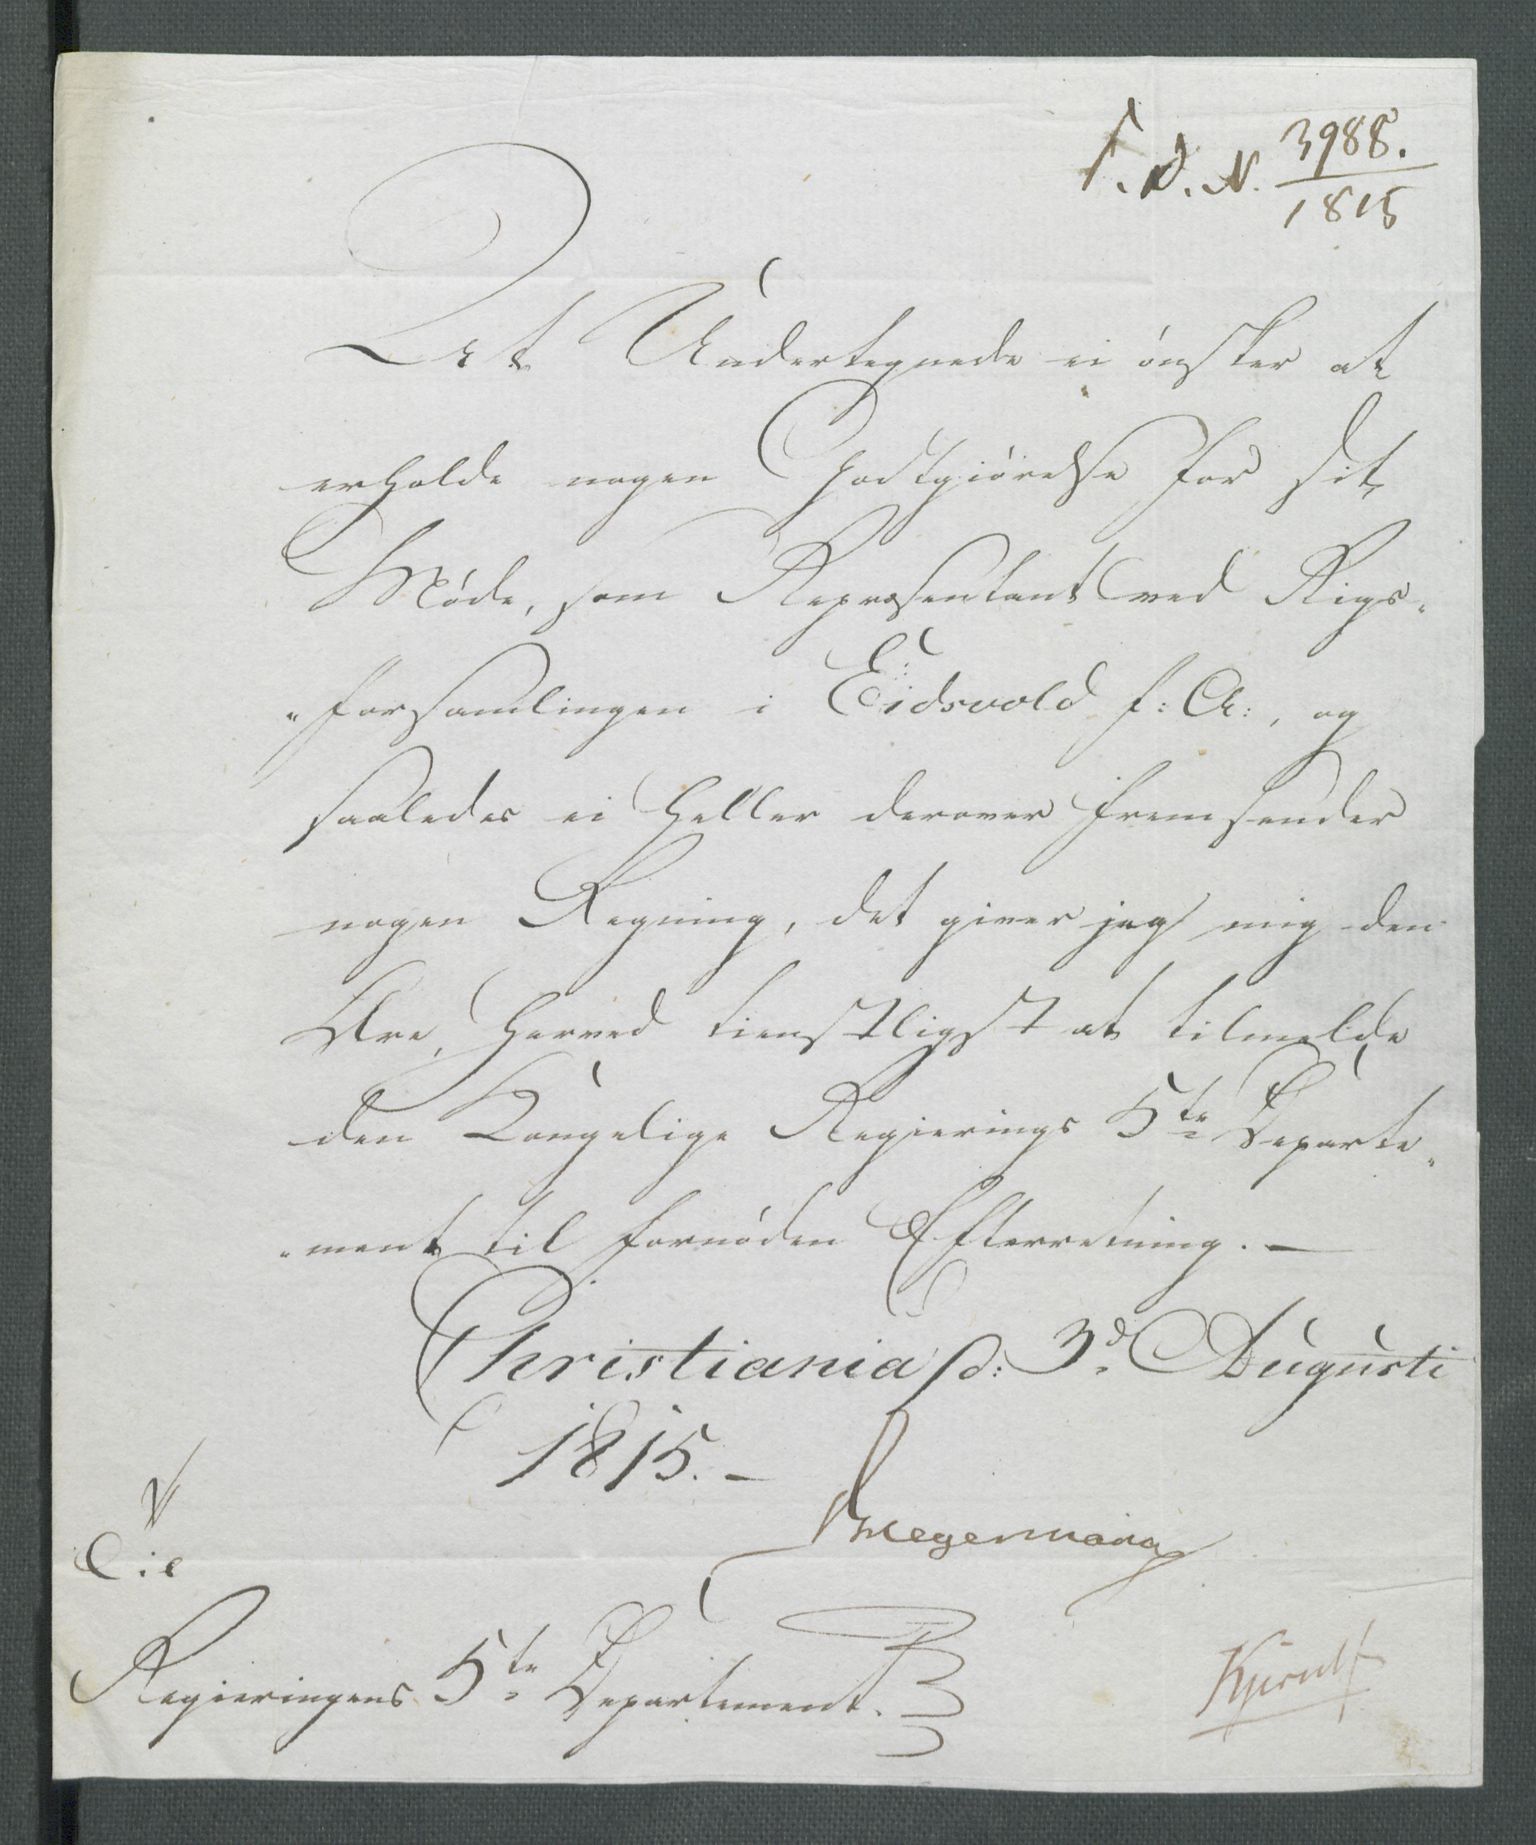 F. D. N. 3988.
1815
At Undertegnede ei ønsker at
erholde nogen Godtgiørelse for sit
Møde, som Repræsentant ved Rigs„
„forsamlingen i Eidsvold f: A:, og
saaledes ei heller derover fremsender
nogen Regning, det giver jeg mig den
Ære, herved tienstligst at tilmelde
den Kongelige Regierings 5te Departe„
„ment til fornøden Efterretning. —
Christiania d: 3d Augusti
1815. —
Til
Regieringens 5te Departement.
Kjerulf